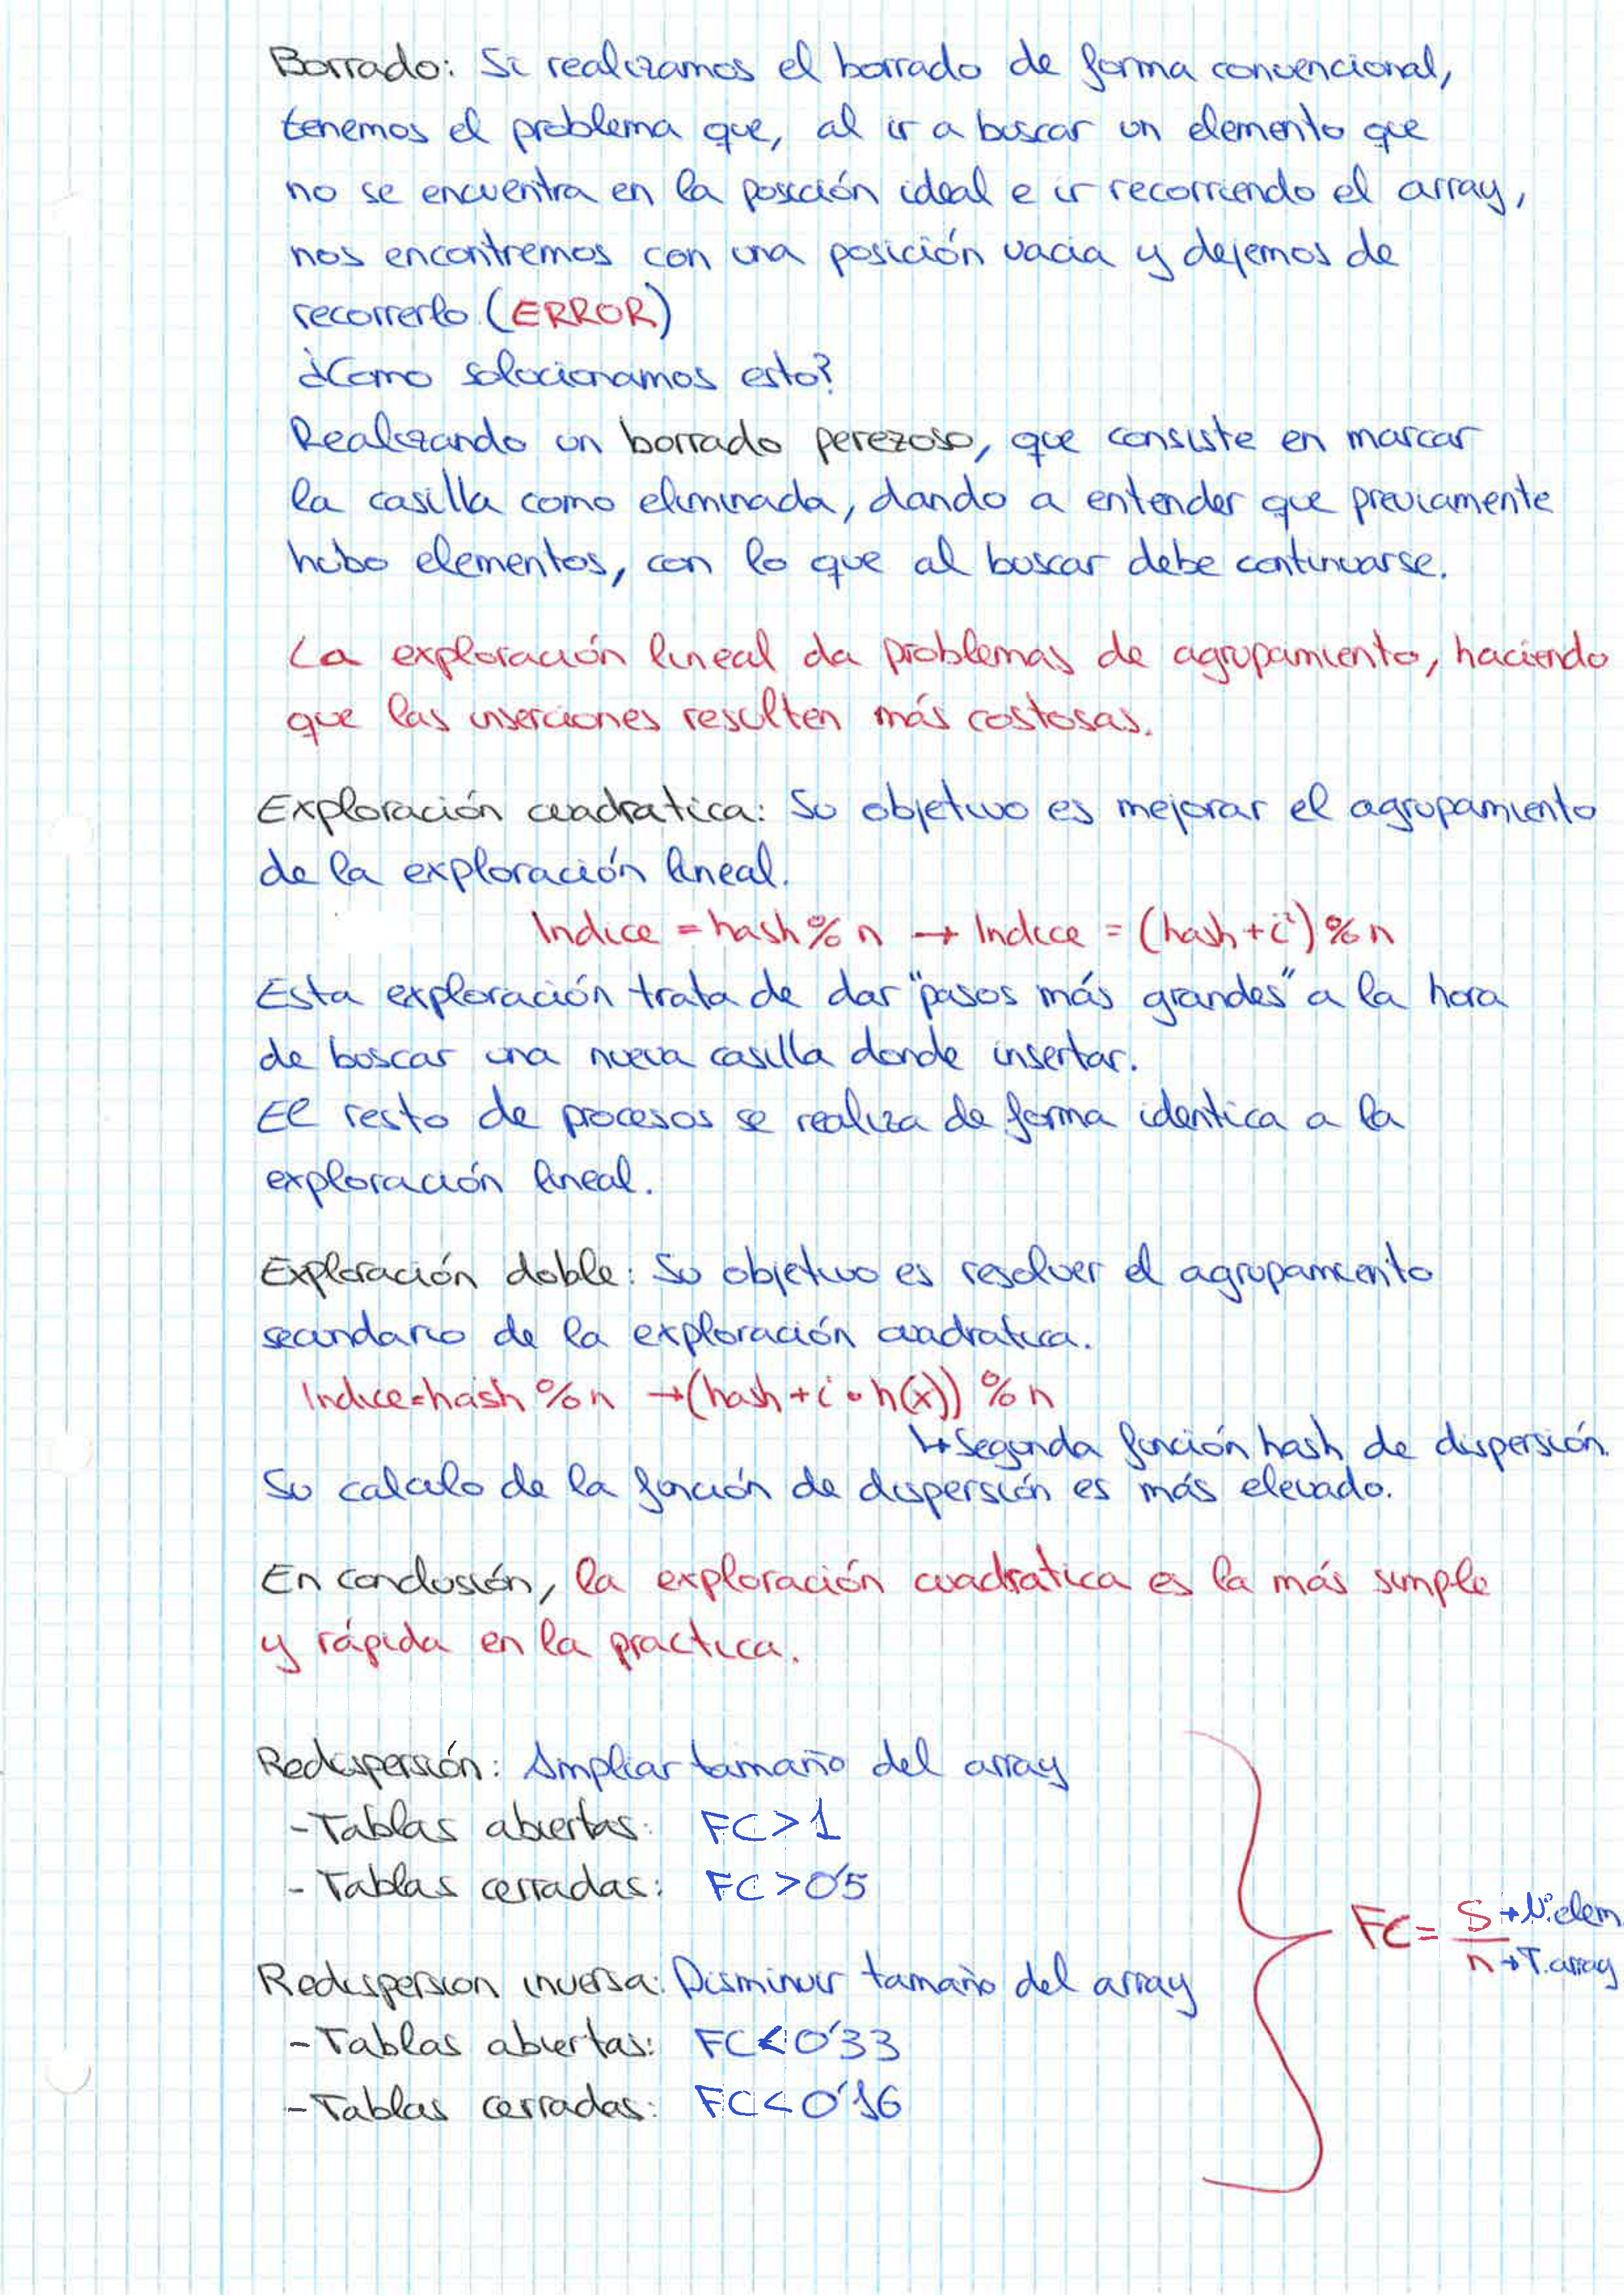 Borrado: Si realizamos el borrado de forma convencional,
tenemos el problema que, al ir a buscar un elemento que
no se encuentra en la posición ideal e ir recorriendo el array,
nos encontremos con una posición vacia y dejemos de
recorrerlo. (ERROR)
¿Como solucionamos esto?
Realizando un borrado perezoso, que consiste en marcar
la casilla como eliminada, dando a entender que previamente
hubo elementos, con lo que al buscar debe continuarse.
La exploración lineal da problemas de agrupamiento, haciendo
que las inserciones resulten más costosas.
Exploración cuadratica: Su objetivo es mejorar el agrupamiento
de la exploración lineal.
Indice = hash % n → Indice = (hash + i²) % n
Esta exploración trata de dar "pasos más grandes" a la hora
de buscar una nueva casilla donde insertar.
El resto de procesos se realiza de forma identica a la
exploración lineal.
Exploración doble: Su objetivo es resolver el agrupamiento
secundario de la exploración cuadratica.
Indice = hash % n → (hash + i • h(x)) % n
↳ Segunda función hash de dispersión.
Su calculo de la función de dispersión es más elevado.
En conclusión, la exploración cuadratica es la más simple
y rápida en la practica.
Redispersión: Ampliar tamaño del array
- Tablas abiertas: FC > 1
- Tablas cerradas: FC > 0'5
FC = S → Nº elem
n → T. array
Redispersion inversa: Disminuir tamaño del array
- Tablas abiertas: FC < 0'33
- Tablas cerradas: FC < 0'16